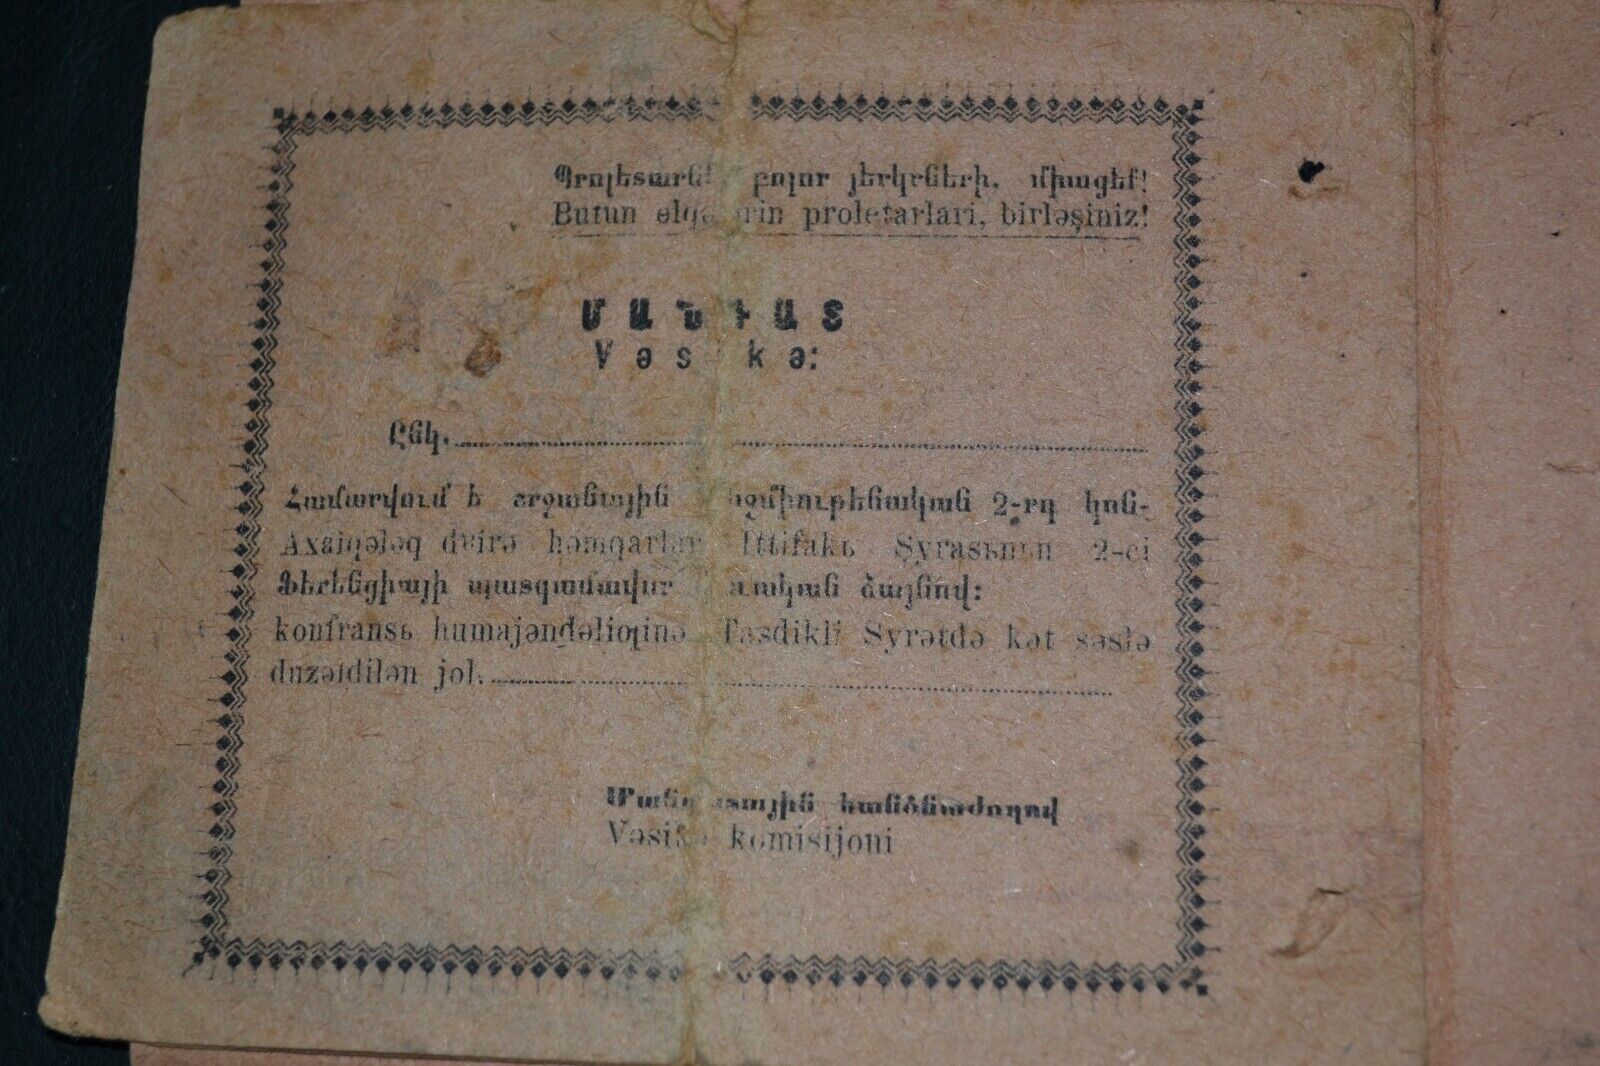 բոլոր յերկրների, միացեք!
Butun proletarlari, birləşiniz!
ՄԱՆԴԱՏ
Vəsikə:
Ընկ.
Համարվում է շրջանային 2-րդ կոն-
Axalqələq dairə həmqarlar Ittifakь Şyrasьnьn 2-ci
ֆերենցիայի պատգամավոր ձայնով:
konfransь humajəndəlioƣinə Tasdikli Syrətdə kət səslə
duzəldilən jol.
Մանդատային հանձնաժողով
Vəsikə komisijoni